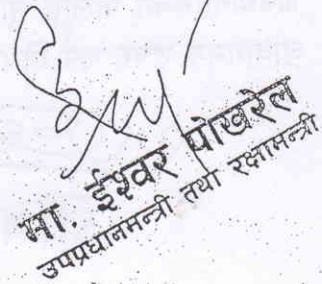 मा. ईश्वर पोखरेल
उपप्रधानमन्त्री तथा रक्षामन्त्री